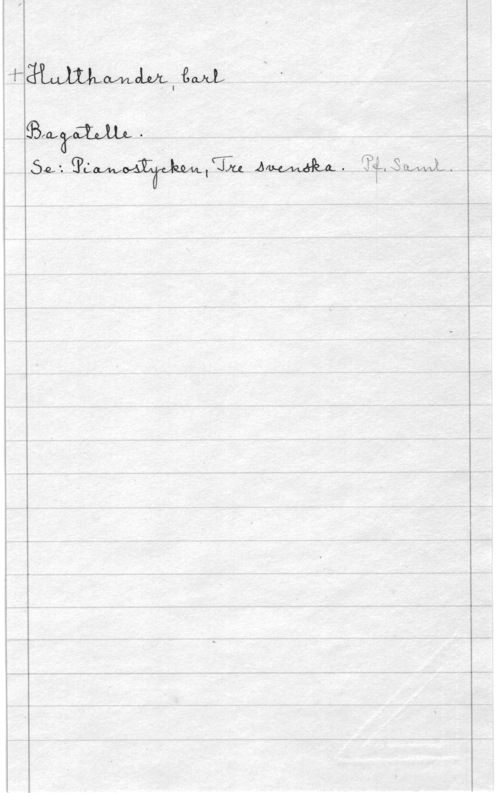 + Hulthander, Carl
Bagatelle.
Se: Pianostycken, Tre svenska. Pf. Saml.